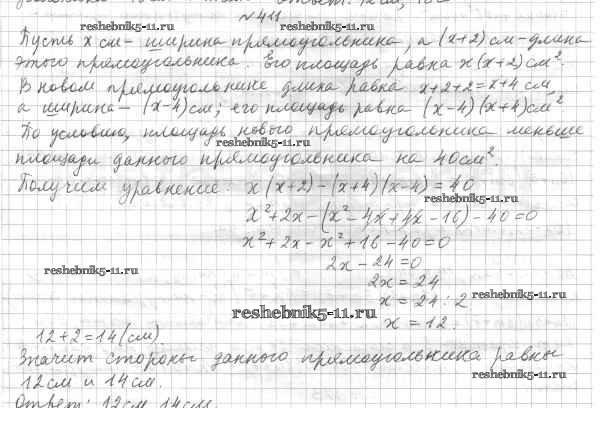 № 411
Пусть x см - ширина прямоугольника, а (x+2) см - длина
этого прямоугольника. Его площадь равна x(x+2) см².
В новом прямоугольнике длина равна x+2+2=x+4 см,
а ширина - (x-4) см; его площадь равна (x-4)(x+4) см²
По условию, площадь нового прямоугольника меньше
площади данного прямоугольника на 40 см².
Получим уравнение: x(x+2)-(x+4)(x-4)=40
x²+2x-(x²-4x+4x-16)-40=0
x²+2x-x²+16-40=0
2x-24=0
2x=24
x=24:2
x=12.
12+2=14 (см).
Значит стороны данного прямоугольника равны
12 см и 14 см.
Ответ: 12 см, 14 см.
reshebnik5-11.ru
reshebnik5-11.ru
reshebnik5-11.ru
reshebnik5-11.ru
reshebnik5-11.ru
reshebnik5-11.ru
reshebnik5-11.ru
reshebnik5-11.ru